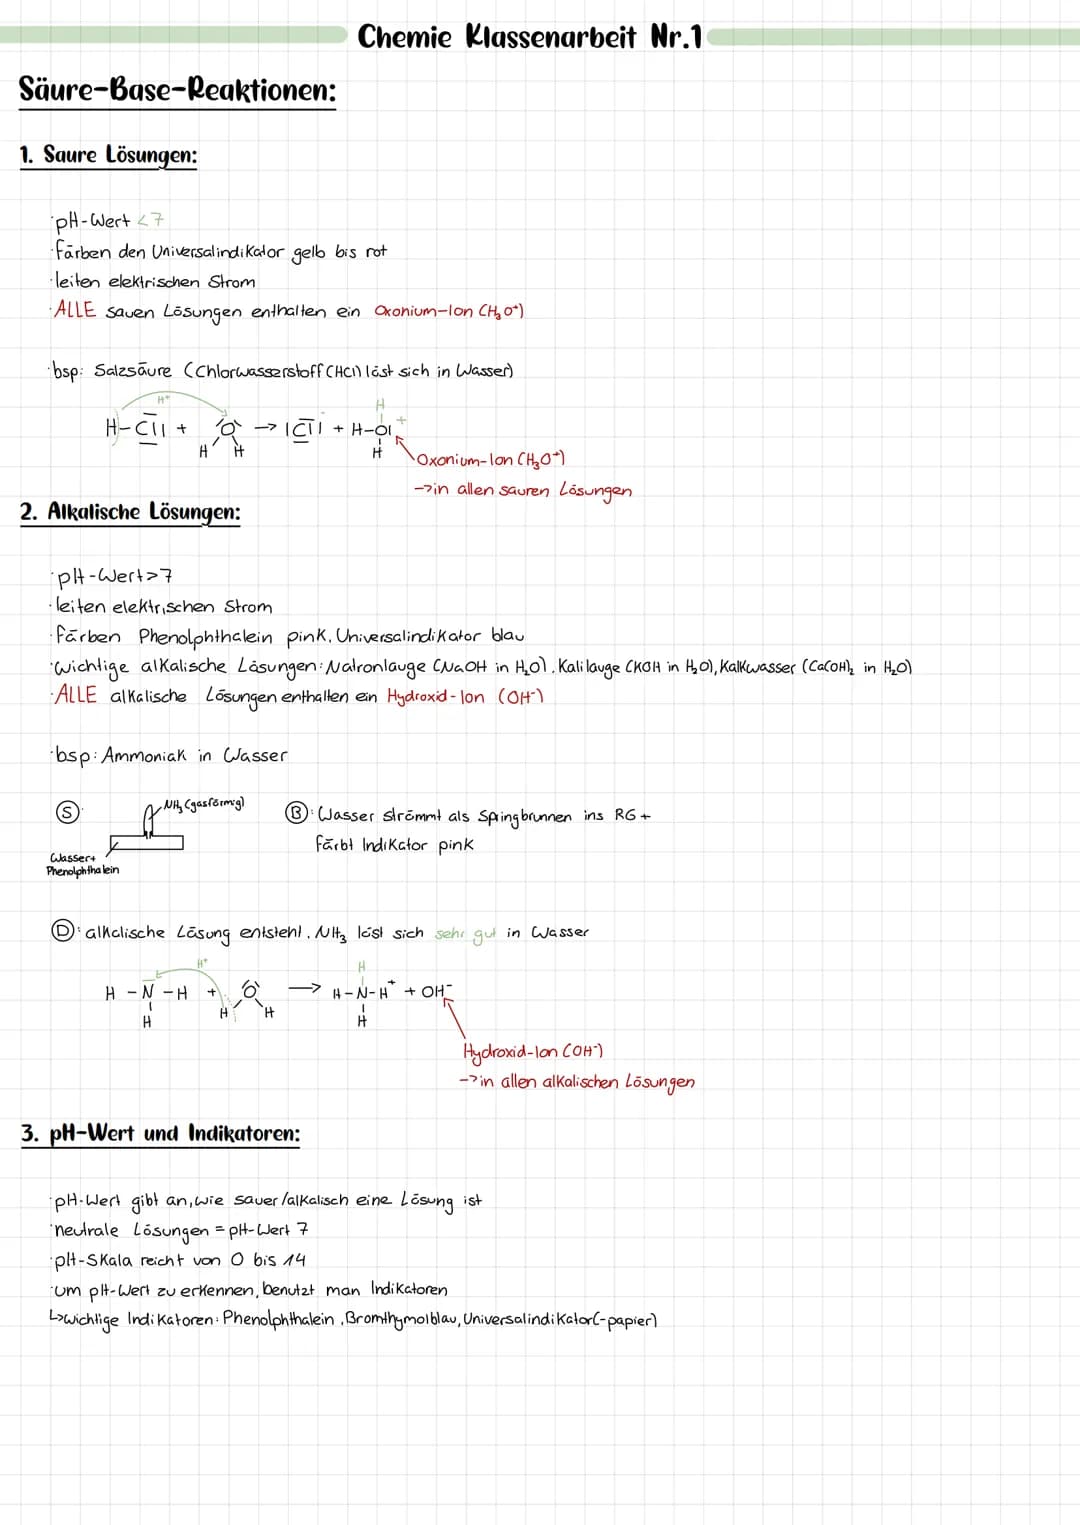 Chemie Klassenarbeit Nr.1
Säure-Base-Reaktionen:
1. Saure Lösungen:
·pH-Wert <7
·färben den Universalindikator gelb bis rot
·leiten elektrischen Strom
·ALLE sauen Lösungen enthalten ein Oxonium-Ion (H₃O⁺)
·bsp: Salzsäure (Chlorwasserstoff (HCl) löst sich in Wasser)
H⁺
H
H-Cl + O → Cl + H-O +
H H H
Oxonium-Ion (H₃O⁺)
->in allen sauren Lösungen
2. Alkalische Lösungen:
·pH-Wert>7
·leiten elektrischen Strom
·färben Phenolphthalein pink, Universalindikator blau
·wichtige alkalische Lösungen: Natronlauge (NaOH in H₂O), Kalilauge (KOH in H₂O), Kalkwasser (Ca(OH)₂ in H₂O)
·ALLE alkalische Lösungen enthalten ein Hydroxid-Ion (OH⁻)
·bsp: Ammoniak in Wasser
S: NH₃ (gasförmig)
Wasser+
Phenolphthalein
B: Wasser strömmt als Springbrunnen ins RG +
färbt Indikator pink
D: alkalische Lösung entsteht. NH₃ löst sich sehr gut in Wasser
H⁺ H
H-N-H + O → H-N-H⁺ + OH⁻
H H H H
Hydroxid-Ion (OH⁻)
->in allen alkalischen Lösungen
3. pH-Wert und Indikatoren:
·pH-Wert gibt an, wie sauer/alkalisch eine Lösung ist
·neutrale Lösungen = pH-Wert 7
·pH-Skala reicht von 0 bis 14
·um pH-Wert zu erkennen, benutzt man Indikatoren
↳wichtige Indikatoren: Phenolphthalein, Bromthymolblau, Universalindikator(-papier)